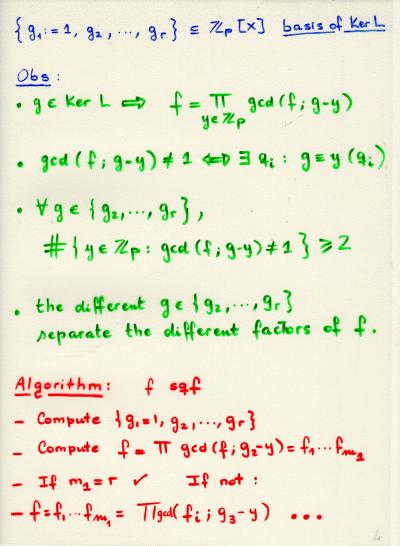 {g₁:=1, g₂, ..., gᵣ} ⊆ ℤₚ[x] basis of Ker L
Obs:
• g ∈ Ker L ⇒ f = ∏ gcd(f; g-y)
y∈ℤₚ
• gcd(f; g-y) ≠ 1 ⇔ ∃ qᵢ : g ≡ y (qᵢ)
• ∀ g ∈ {g₂, ..., gᵣ},
#{y ∈ ℤₚ : gcd(f; g-y) ≠ 1} ≥ 2
• the different g ∈ {g₂, ..., gᵣ}
separate the different factors of f.
Algorithm: f sqf
- Compute {g₁=1, g₂, ..., gᵣ}
- Compute f = ∏ gcd(f; g₂-y) = f₁...fₘ₂
- If m₂=r ✓ If not:
- f=f₁...fₘ₂ = ∏gcd(fᵢ; g₃-y) ...